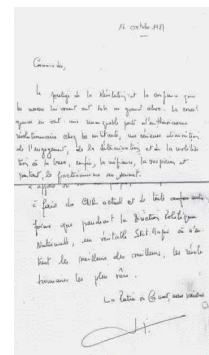 16 octobre 1987
Camarades,
le prestige de la Révolution et la confiance que
les masses lui vouent ont subi un grand choc. Les consé
quences en sont une remarquable perte d'enthousiasme
révolutionnaire chez les militants, une sérieuse diminution
de l'engagement, de la détermination et de la mobilisa
tion à la base, enfin, la méfiance, la suspicion et
partout, le fractionnisme au sommet.
à faire du CNR actuel et de toute
forme que prendrait la Direction Politique
Nationale, un véritable Etat-Major où n'en
trent les meilleurs des meilleurs, les révolu
tionnaires les plus sûrs.
La Patrie ou la mort, nous vaincrons